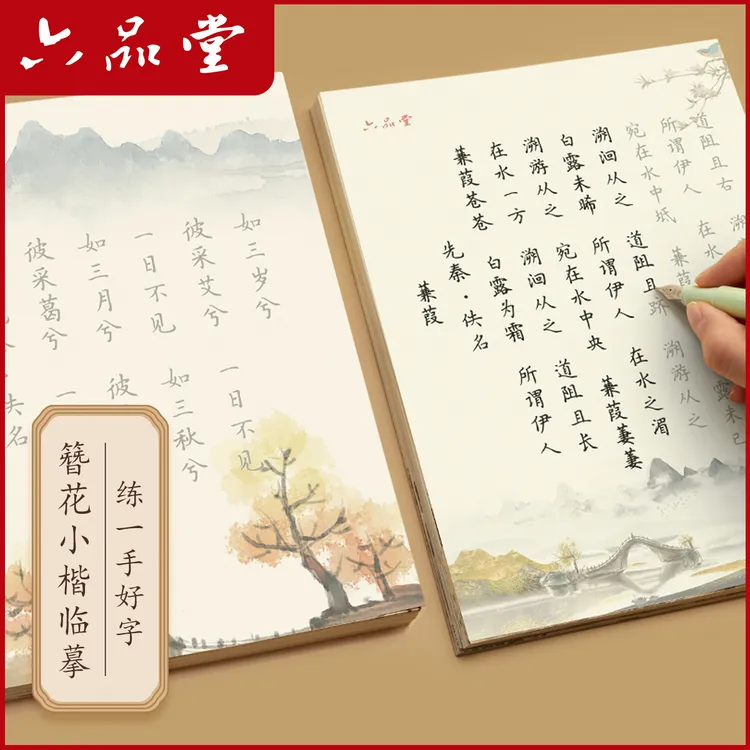 六品堂
佚名
彼采葛兮
一
如三月兮
彼
一日不见
如三秋兮
彼采艾兮
一日不见
如三岁兮
簪花小楷临摹
练一手好字
六品堂
蒹葭
先秦·佚名
蒹葭苍苍
白露为霜
所谓伊人
在水一方
溯洄从之
道阻且长
溯游从之
宛在水中央
蒹葭萋萋
白露未晞
所谓伊人
在水之湄
溯洄从之
道阻且跻
溯游从之
宛在水中坻
蒹葭
白露未已
所谓伊人
在水
道阻且右